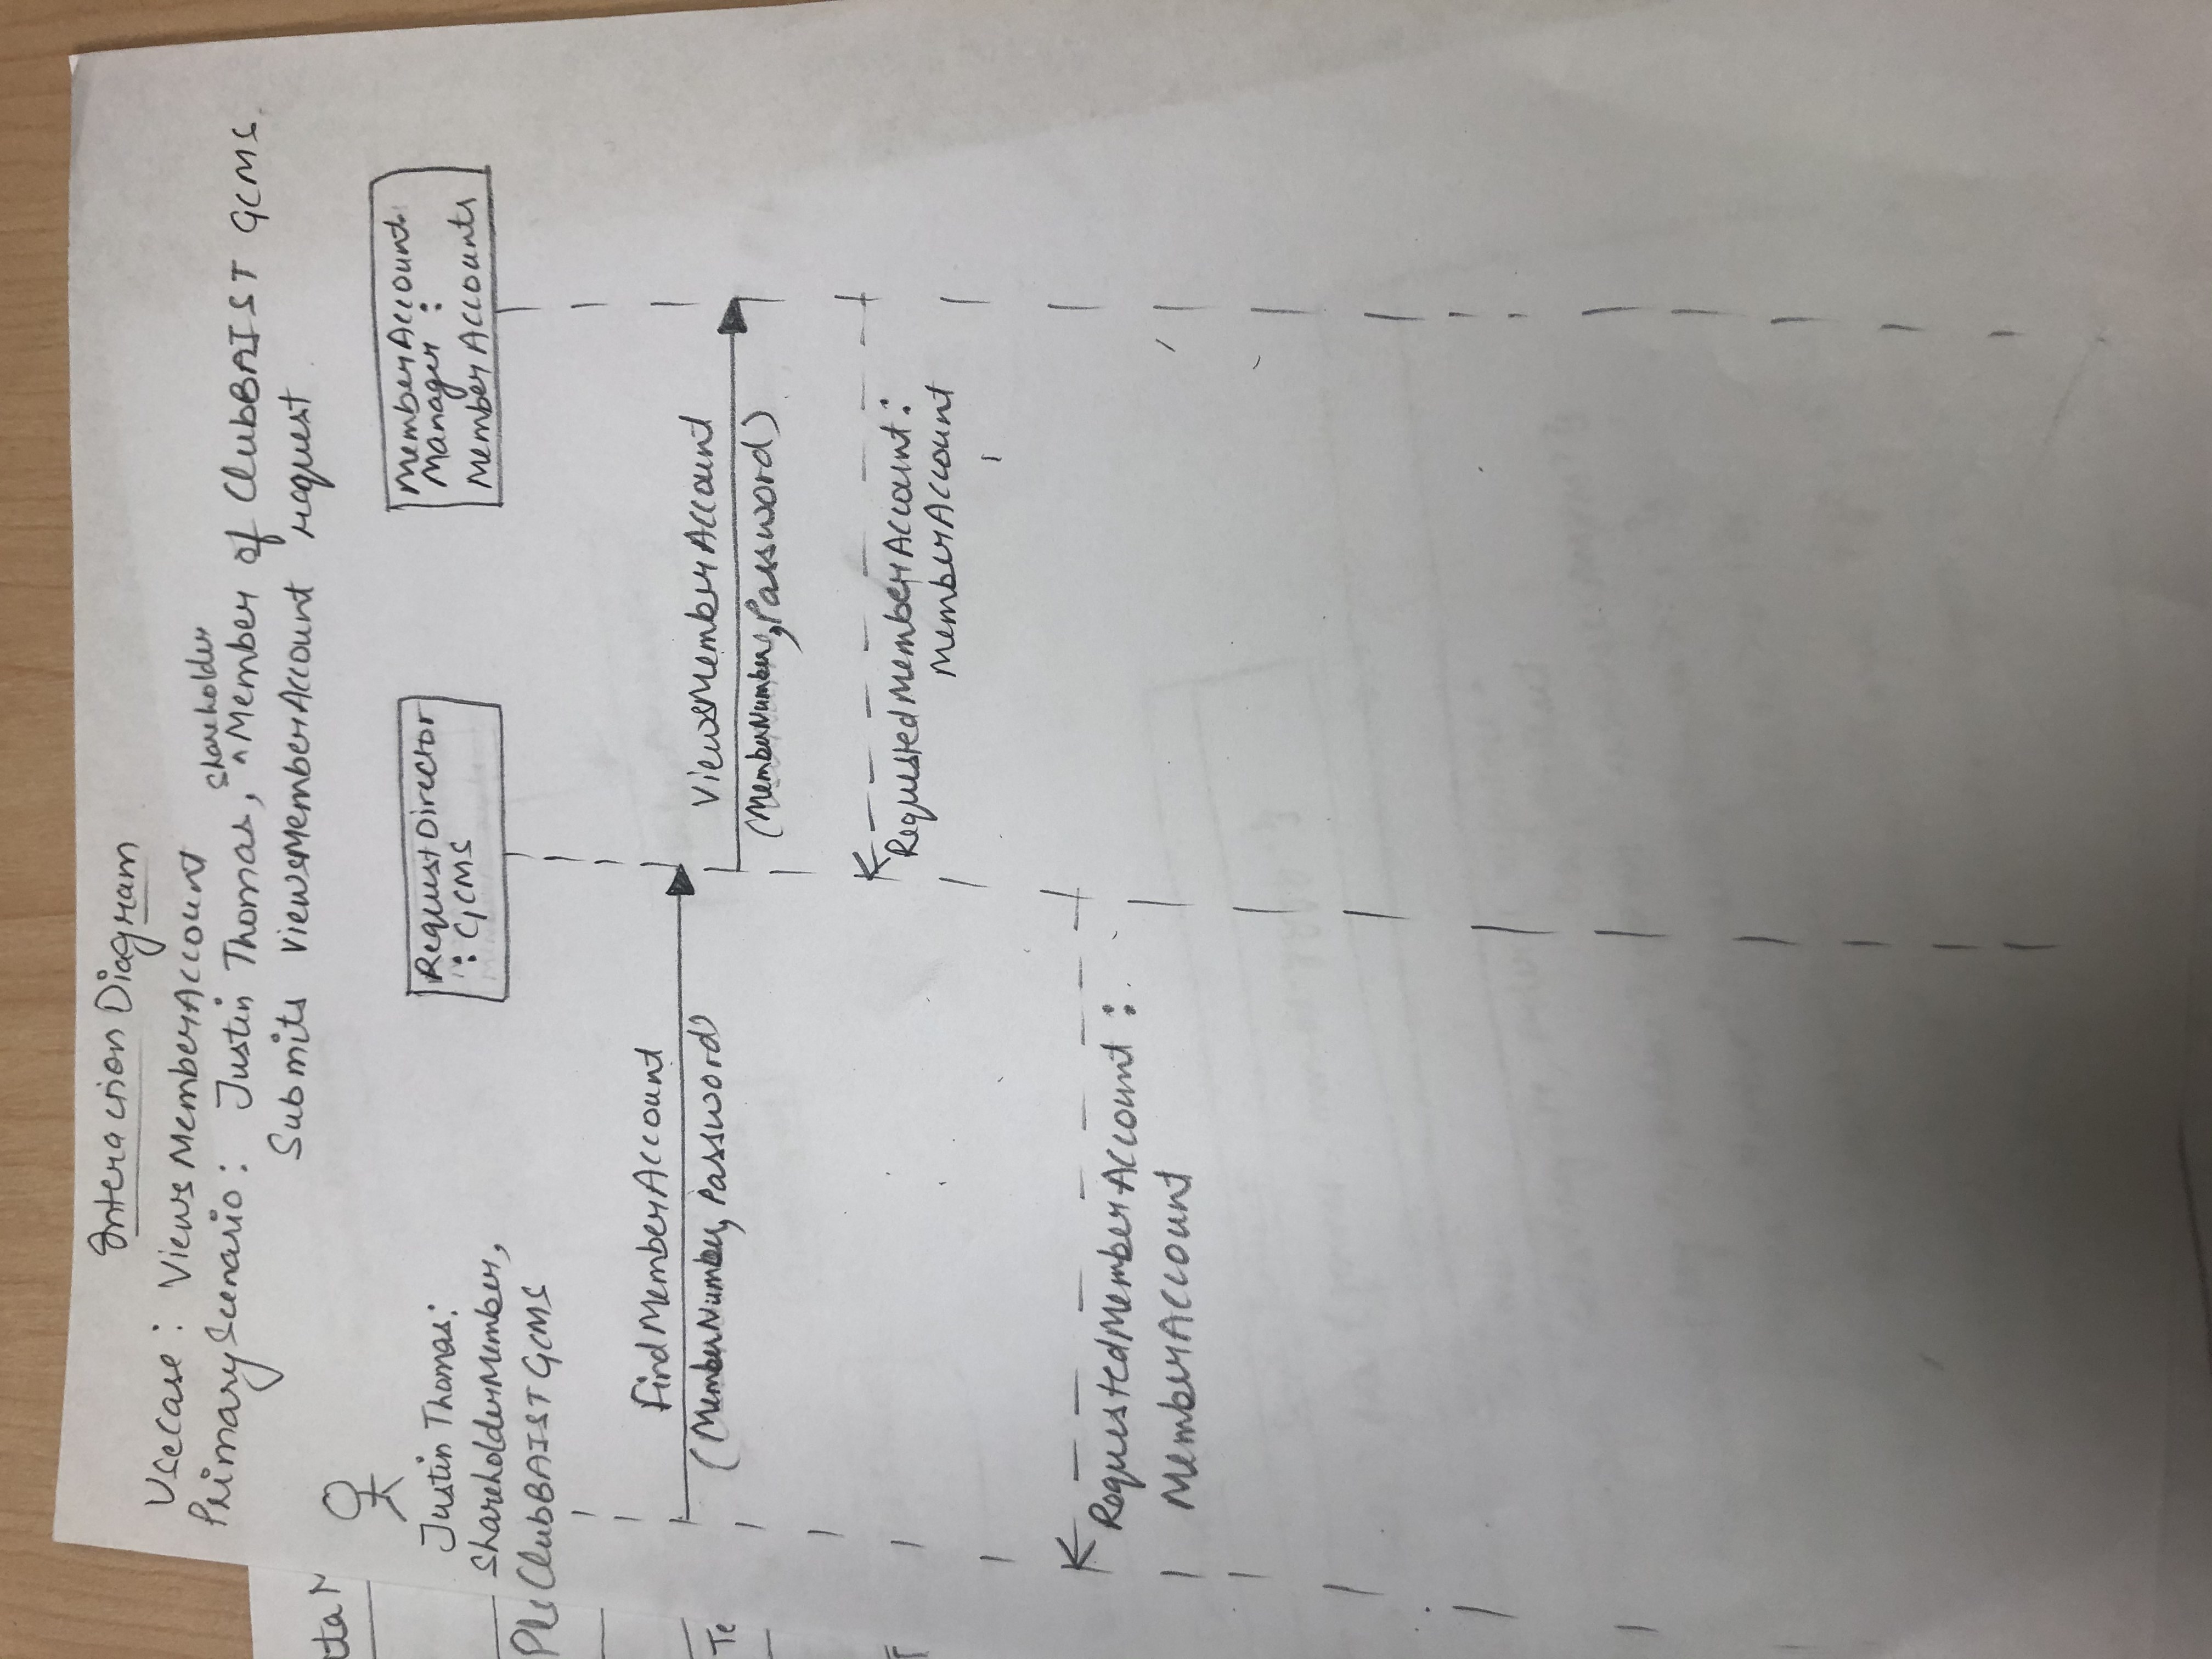 Interaction Diagram
Usecase: ViewsMemberAccount
PrimaryScenario: Justin Thomas, Shareholder Member of ClubBAIST GCMS
Submits ViewsMemberAccount request
Justin Thomas:
ShareholderMember,
ClubBAIST GCMS
RequestDirector
: GCMS
MemberAccount
Manager :
MemberAccounts
FindMemberAccount
(MemberNumber, Password)
ViewsMemberAccount
(MemberNumber, Password)
RequestedMemberAccount:
MemberAccount
RequestedMemberAccount:
MemberAccount
Te